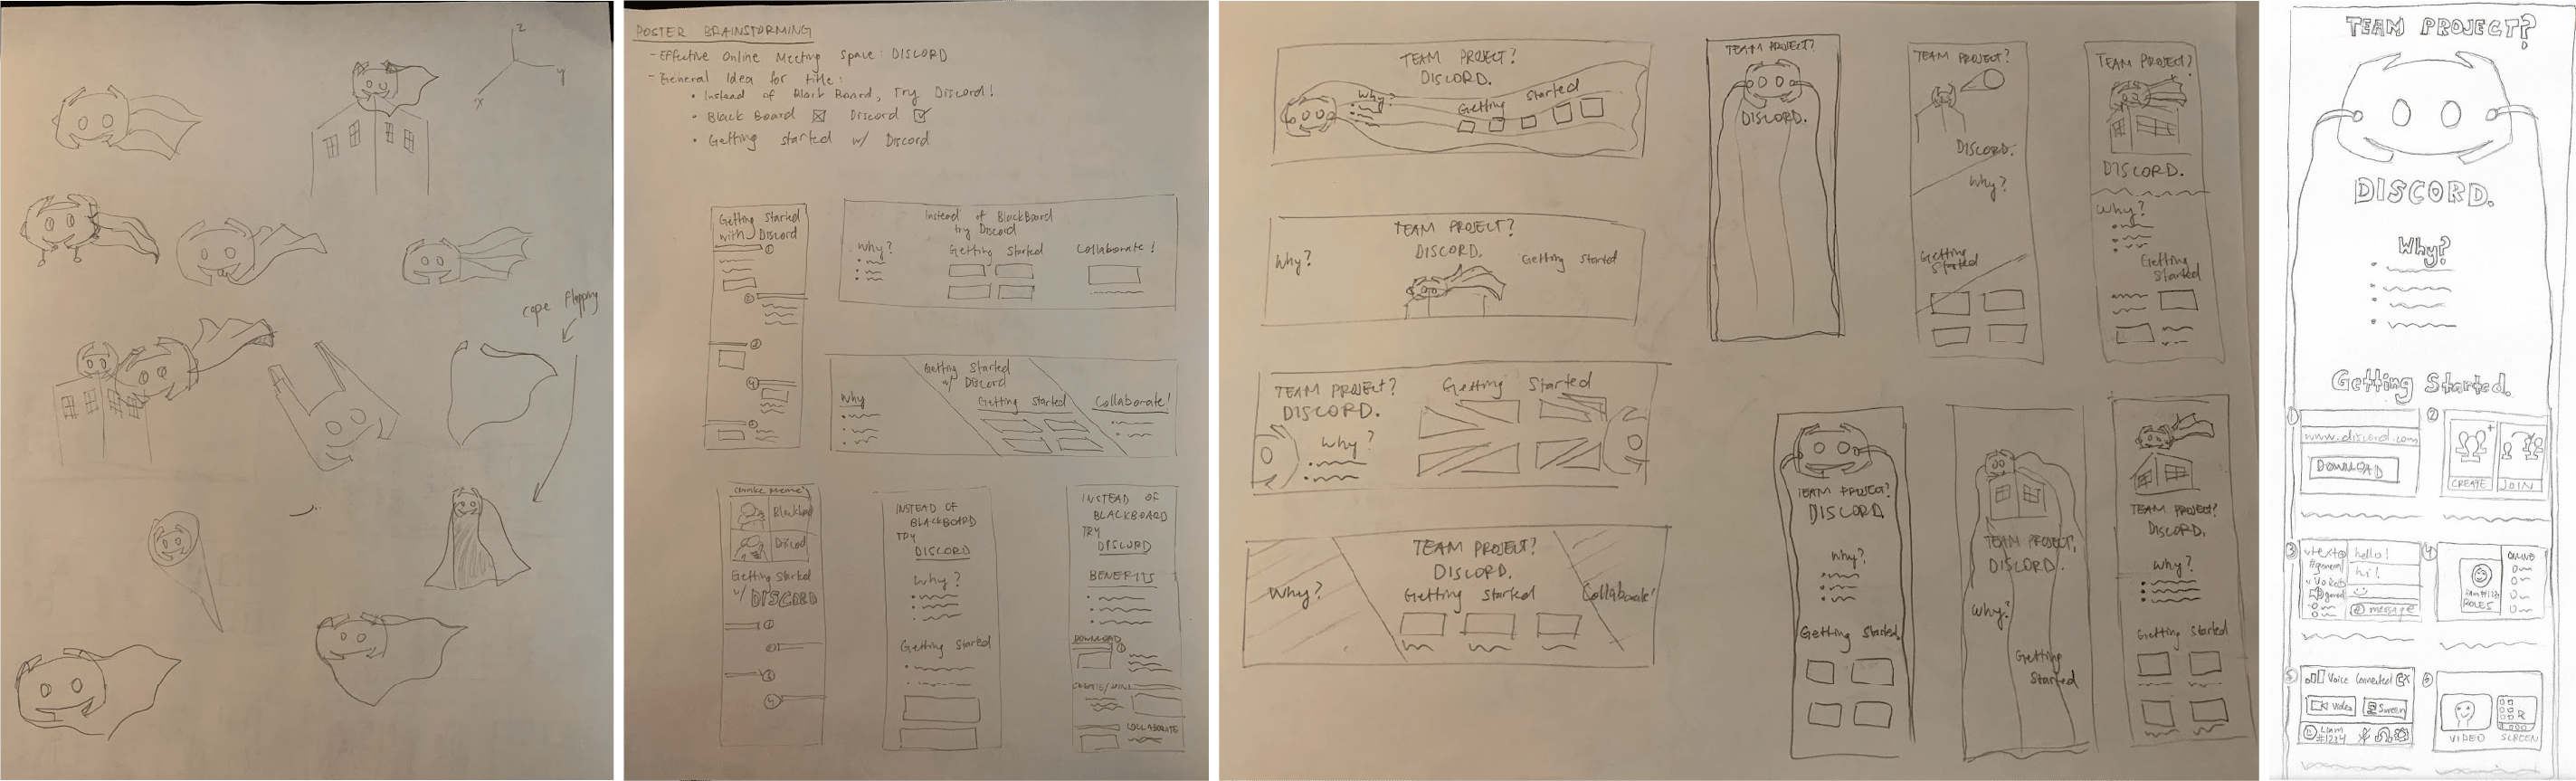 Z
y
x
cape flapping
POSTER BRAINSTORMING
- Effective Online Meeting Space: DISCORD
- General Idea for title:
• Instead of Black Board, Try Discord!
• Black Board ☒ Discord ☑
• Getting started w/ Discord
Getting Started
with Discord
①
②
③
④
⑤
Instead of BlackBoard
try Discord
Why?
Getting Started
Collaborate!
Getting Started
w/ Discord
Why
Getting Started
Collaborate!
Blackboard
Discord
Getting Started
w/ DISCORD
①
②
③
④
INSTEAD OF
BLACKBOARD
TRY
DISCORD
Why?
Getting Started
INSTEAD OF
BLACKBOARD
TRY
DISCORD
BENEFITS
DOWNLOAD
①
CREATE/JOIN
COLLABORATE
TEAM PROJECT?
DISCORD.
Why?
Getting Started
TEAM PROJECT?
DISCORD.
Why?
Getting Started
TEAM PROJECT?
DISCORD.
Why?
Getting Started
TEAM PROJECT?
DISCORD.
Why?
Getting Started
Collaborate!
TEAM PROJECT?
DISCORD.
TEAM PROJECT?
DISCORD.
Why?
Getting
Started
TEAM PROJECT?
DISCORD.
Why?
Getting
Started
TEAM PROJECT?
DISCORD.
Why?
Getting Started.
TEAM PROJECT?
DISCORD.
Why?
Getting
Started
TEAM PROJECT?
DISCORD.
Why?
Getting Started
TEAM PROJECT?
DISCORD.
Why?
Getting Started.
①
www.discord.com
DOWNLOAD
②
CREATE JOIN
③
Text
hello!
#general
hi!
Voice
general
message
④
ONLINE
ROLES
⑤
Voice Connected
Video Screen
Liam
#1224
⑥
VIDEO SCREEN